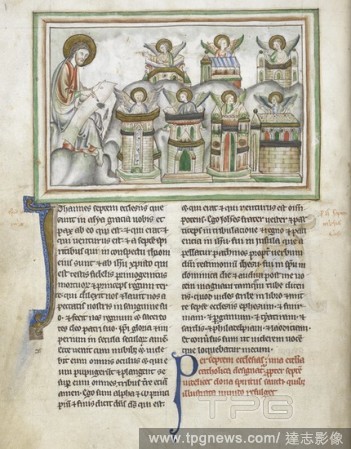 Johannes septem ecclesiis que
sunt in asya gracia vobis et
pax ab eo qui est et qui erat et
qui venturus est et a septem spi
ritibus qui in conspectu throni
eius sunt et ab ihu xpisto qui
est testis fidelis primogenitus
mortuorum et princeps regum ter
re qui dilexit nos et lavit nos a
peccatis nostris in sanguine su
o et fecit nos regnum et sacerdo
tes deo patri suo ipsi gloria et im
perium in secula seculorum amen
ecce venit cum nubibus et vide
bit eum omnis oculus et qui e
um pupugerunt et plangent se
super eum omnes tribus terre etiam
amen Ego sum alpha et o princi
pium et finis dicit dominus deus qui est
et qui erat et qui venturus est omni
potens Ego iohannes frater vester et par
ticeps in tribulatione et regno et pati
encia in ihu fui in insula que a
ppellatur pathmos propter verbum
dei et testimonium ihu fui in spiritu in
dominica die et audivi post me vo
cem magnam tanquam tube dicen
tis quod vides scribe in libro et mit
te septem ecclesiis ephesum et smir
nam et pergamum et tyatiram et
sardis et philadelphiam et laodiciam
et conversus sum ut viderem vocem
que loquebatur mecum
Per septem ecclesias una ecclesia
catholica designatur propter septem
dona spiritus sancti quibus
illuminata refulget
TPG
www.tpgnews.com / 達志影像